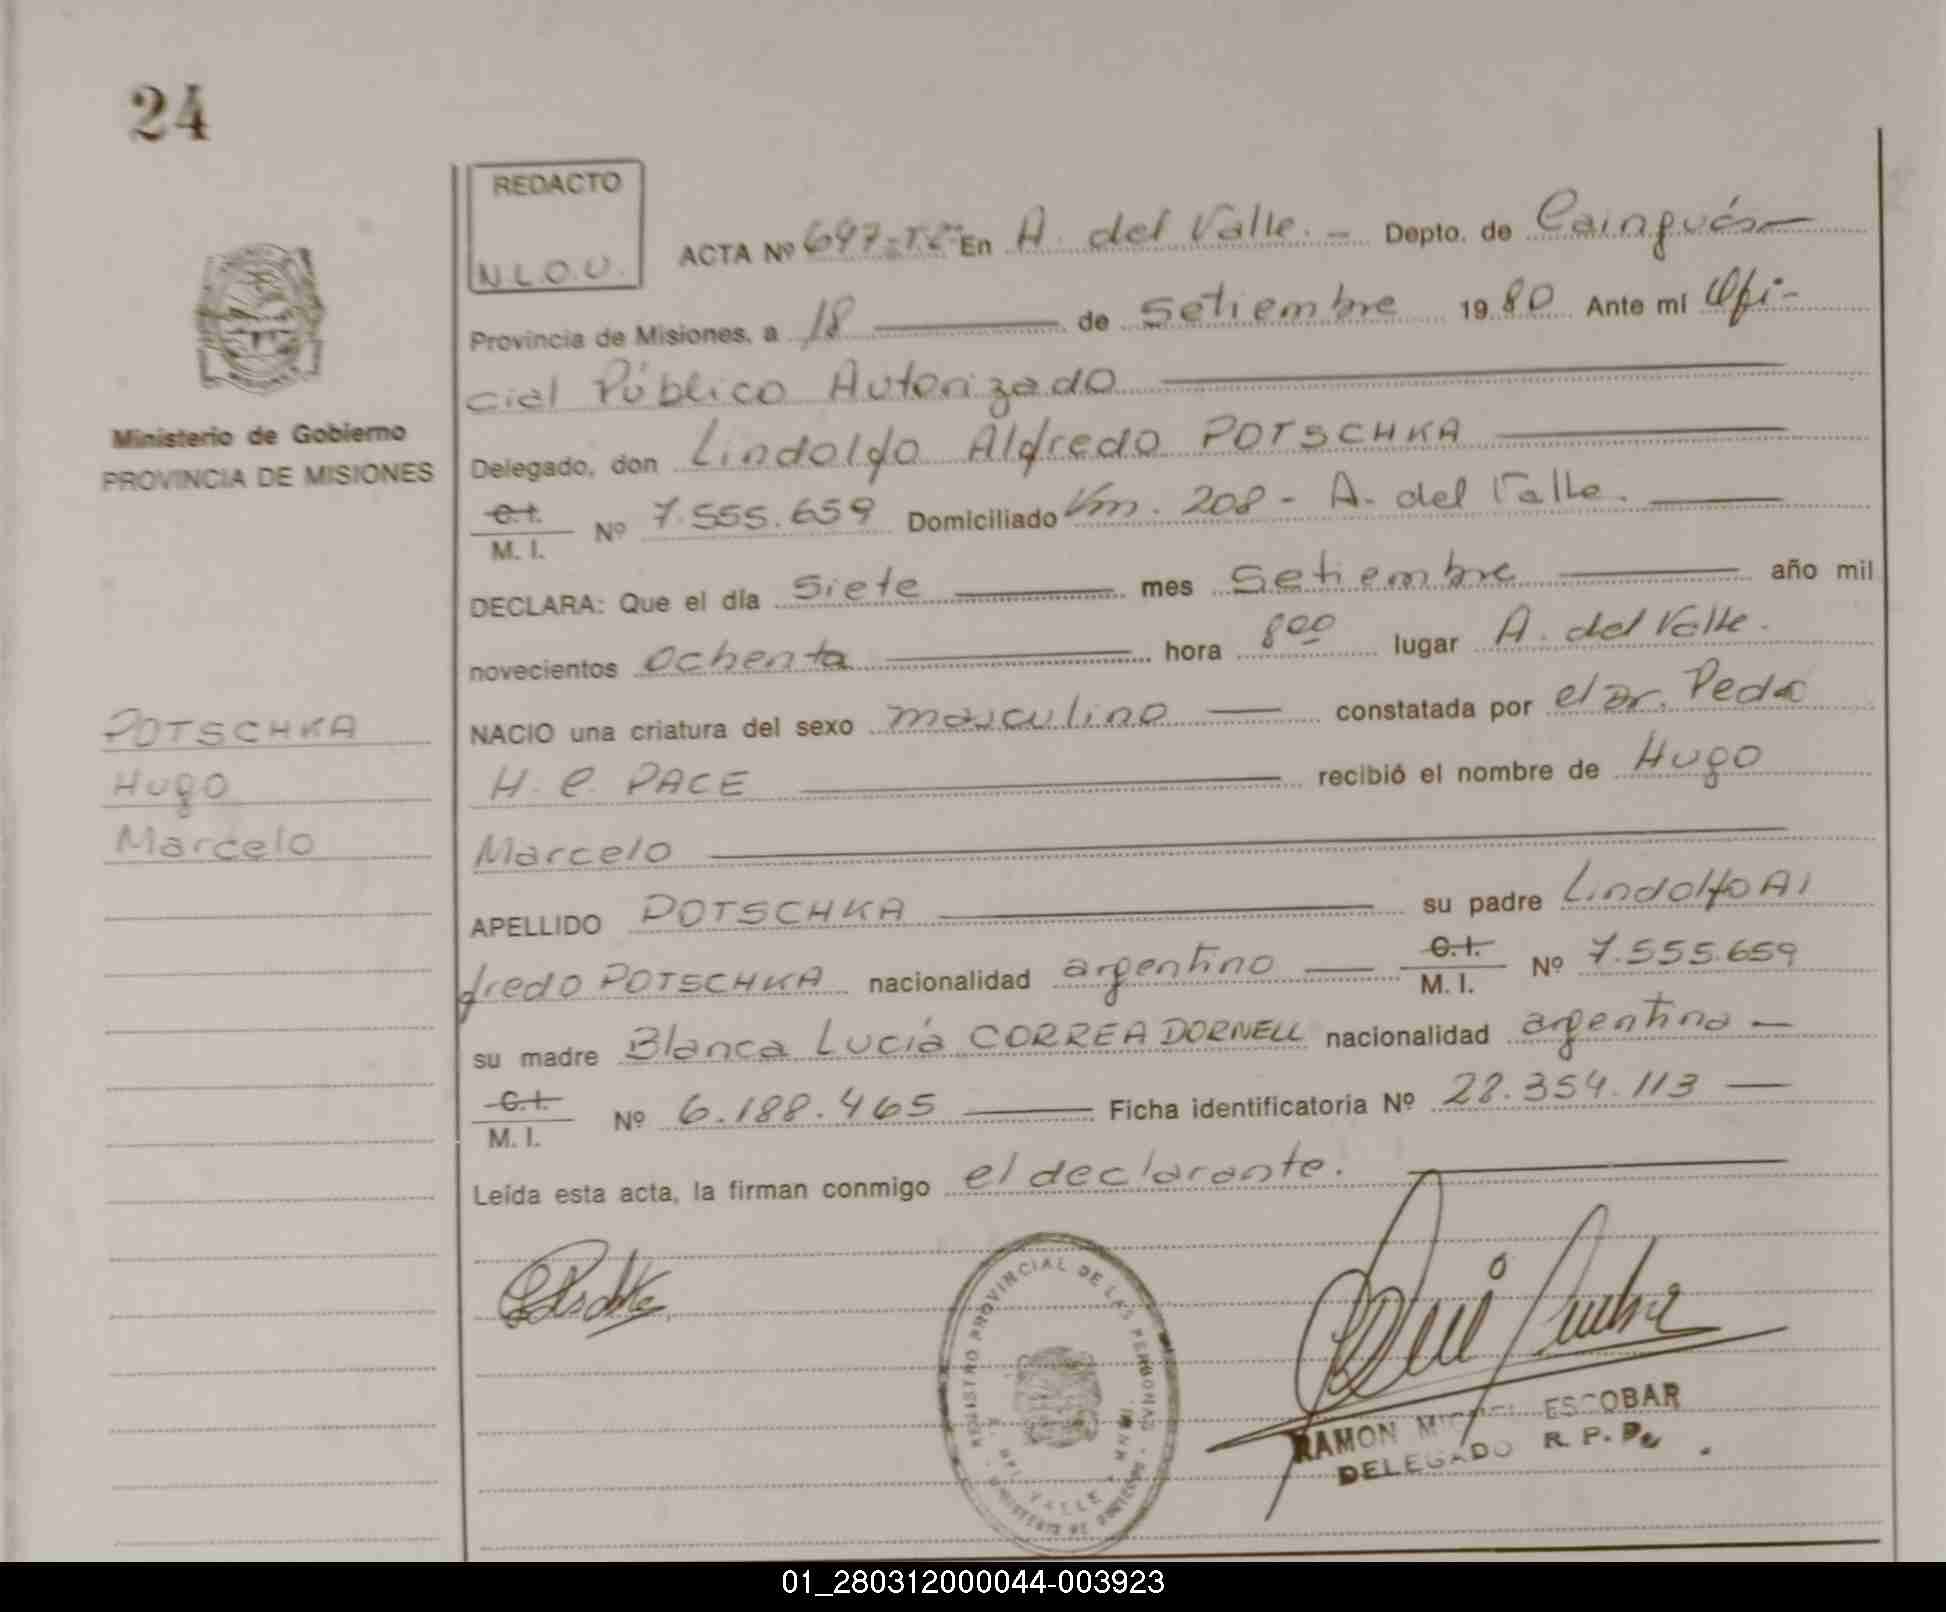 24
REDACTO
N.L.O.U.
ACTA Nº 697-T.2- En A. del Valle. - Depto. de Cainguás
Provincia de Misiones, a 18 de Setiembre 1980 Ante mí Ofi-
cial Público Autorizado
Ministerio de Gobierno
PROVINCIA DE MISIONES
Delegado, don Lindolfo Alfredo POTSCHKA
C.I. M. I. Nº 7.555.659 Domiciliado Km. 208 - A. del Valle.
DECLARA: Que el día Siete mes Setiembre año mil
novecientos Ochenta hora 8⁰⁰ lugar A. del Valle.
NACIO una criatura del sexo masculino constatada por el Dr. Pedro
POTSCHKA
Hugo
Marcelo
H. C. PACE recibió el nombre de Hugo
Marcelo
APELLIDO POTSCHKA su padre Lindolfo Al
fredo POTSCHKA nacionalidad argentino C.I. M. I. Nº 7.555.659
su madre Blanca Lucía CORREA DORNELL nacionalidad argentina -
C.I. M. I. Nº 6.188.465 Ficha identificatoria Nº 28.354.113
Leída esta acta, la firman conmigo el declarante.
REGISTRO PROVINCIAL DE LAS PERSONAS
VALLE
MINISTERIO DE GOBIERNO
RAMON MIGUEL ESCOBAR
DELEGADO R. P. P.
01_280312000044-003923